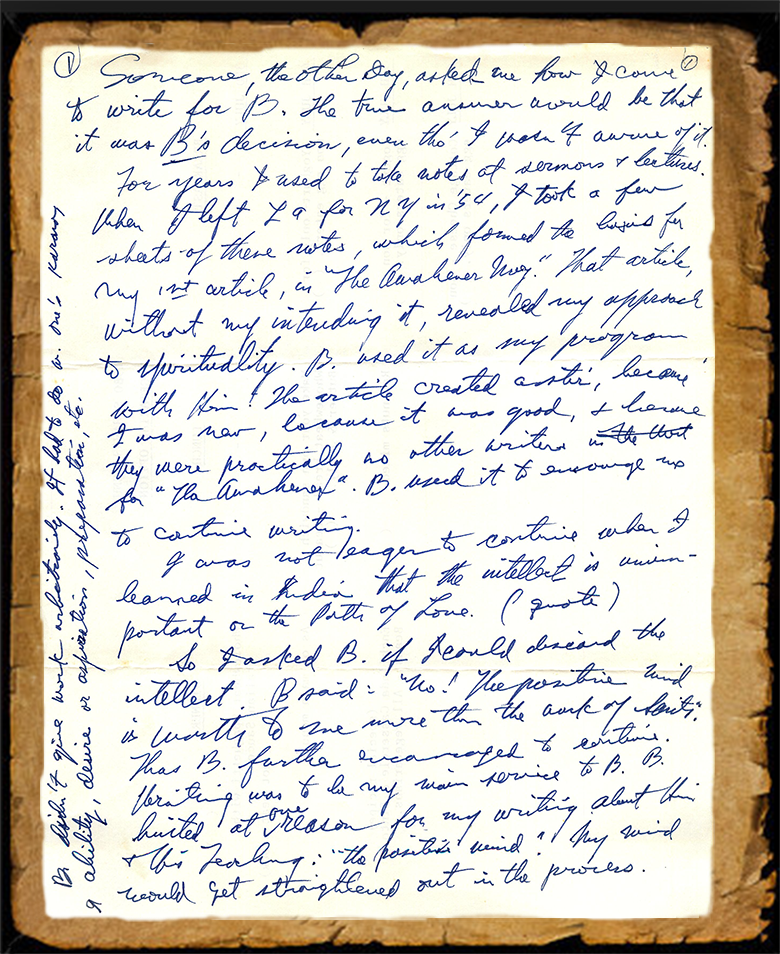 ① Someone, the other Day, asked me how I came ①
to write for B. The true answer would be that
it was B's decision, even tho' I wasn't aware of it.
For years I used to take notes at sermons & lectures.
When I left LA for NY in '54, I took a few
sheets of these notes, which formed the basis for
my 1st article, in "The Awakener Mag." That article,
without my intending it, revealed my approach
to spirituality. B. used it as my program
with Him! The article created a stir, because
I was new, because it was good, & because
they were practically no other writers in the West
for "The Awakener". B. used it to encourage me
to continue writing.
I was not eager to continue when I
learned in India that the intellect is unim-
portant on the Path of Love. (quote)
So I asked B. if I could discard the
intellect. B said: "No! The positive mind
is worth to me more than the work of saints".
Thus B. further encouraged to continue.
Writing was to be my main service to B. B.
hinted at one reason for my writing about Him
& His Teaching: "the positive mind". My mind
would get straightened out in the process.
B. didn't give work arbitrarily. It had to do w. one's karma,
& ability, desire or aspiration, preparation, etc.